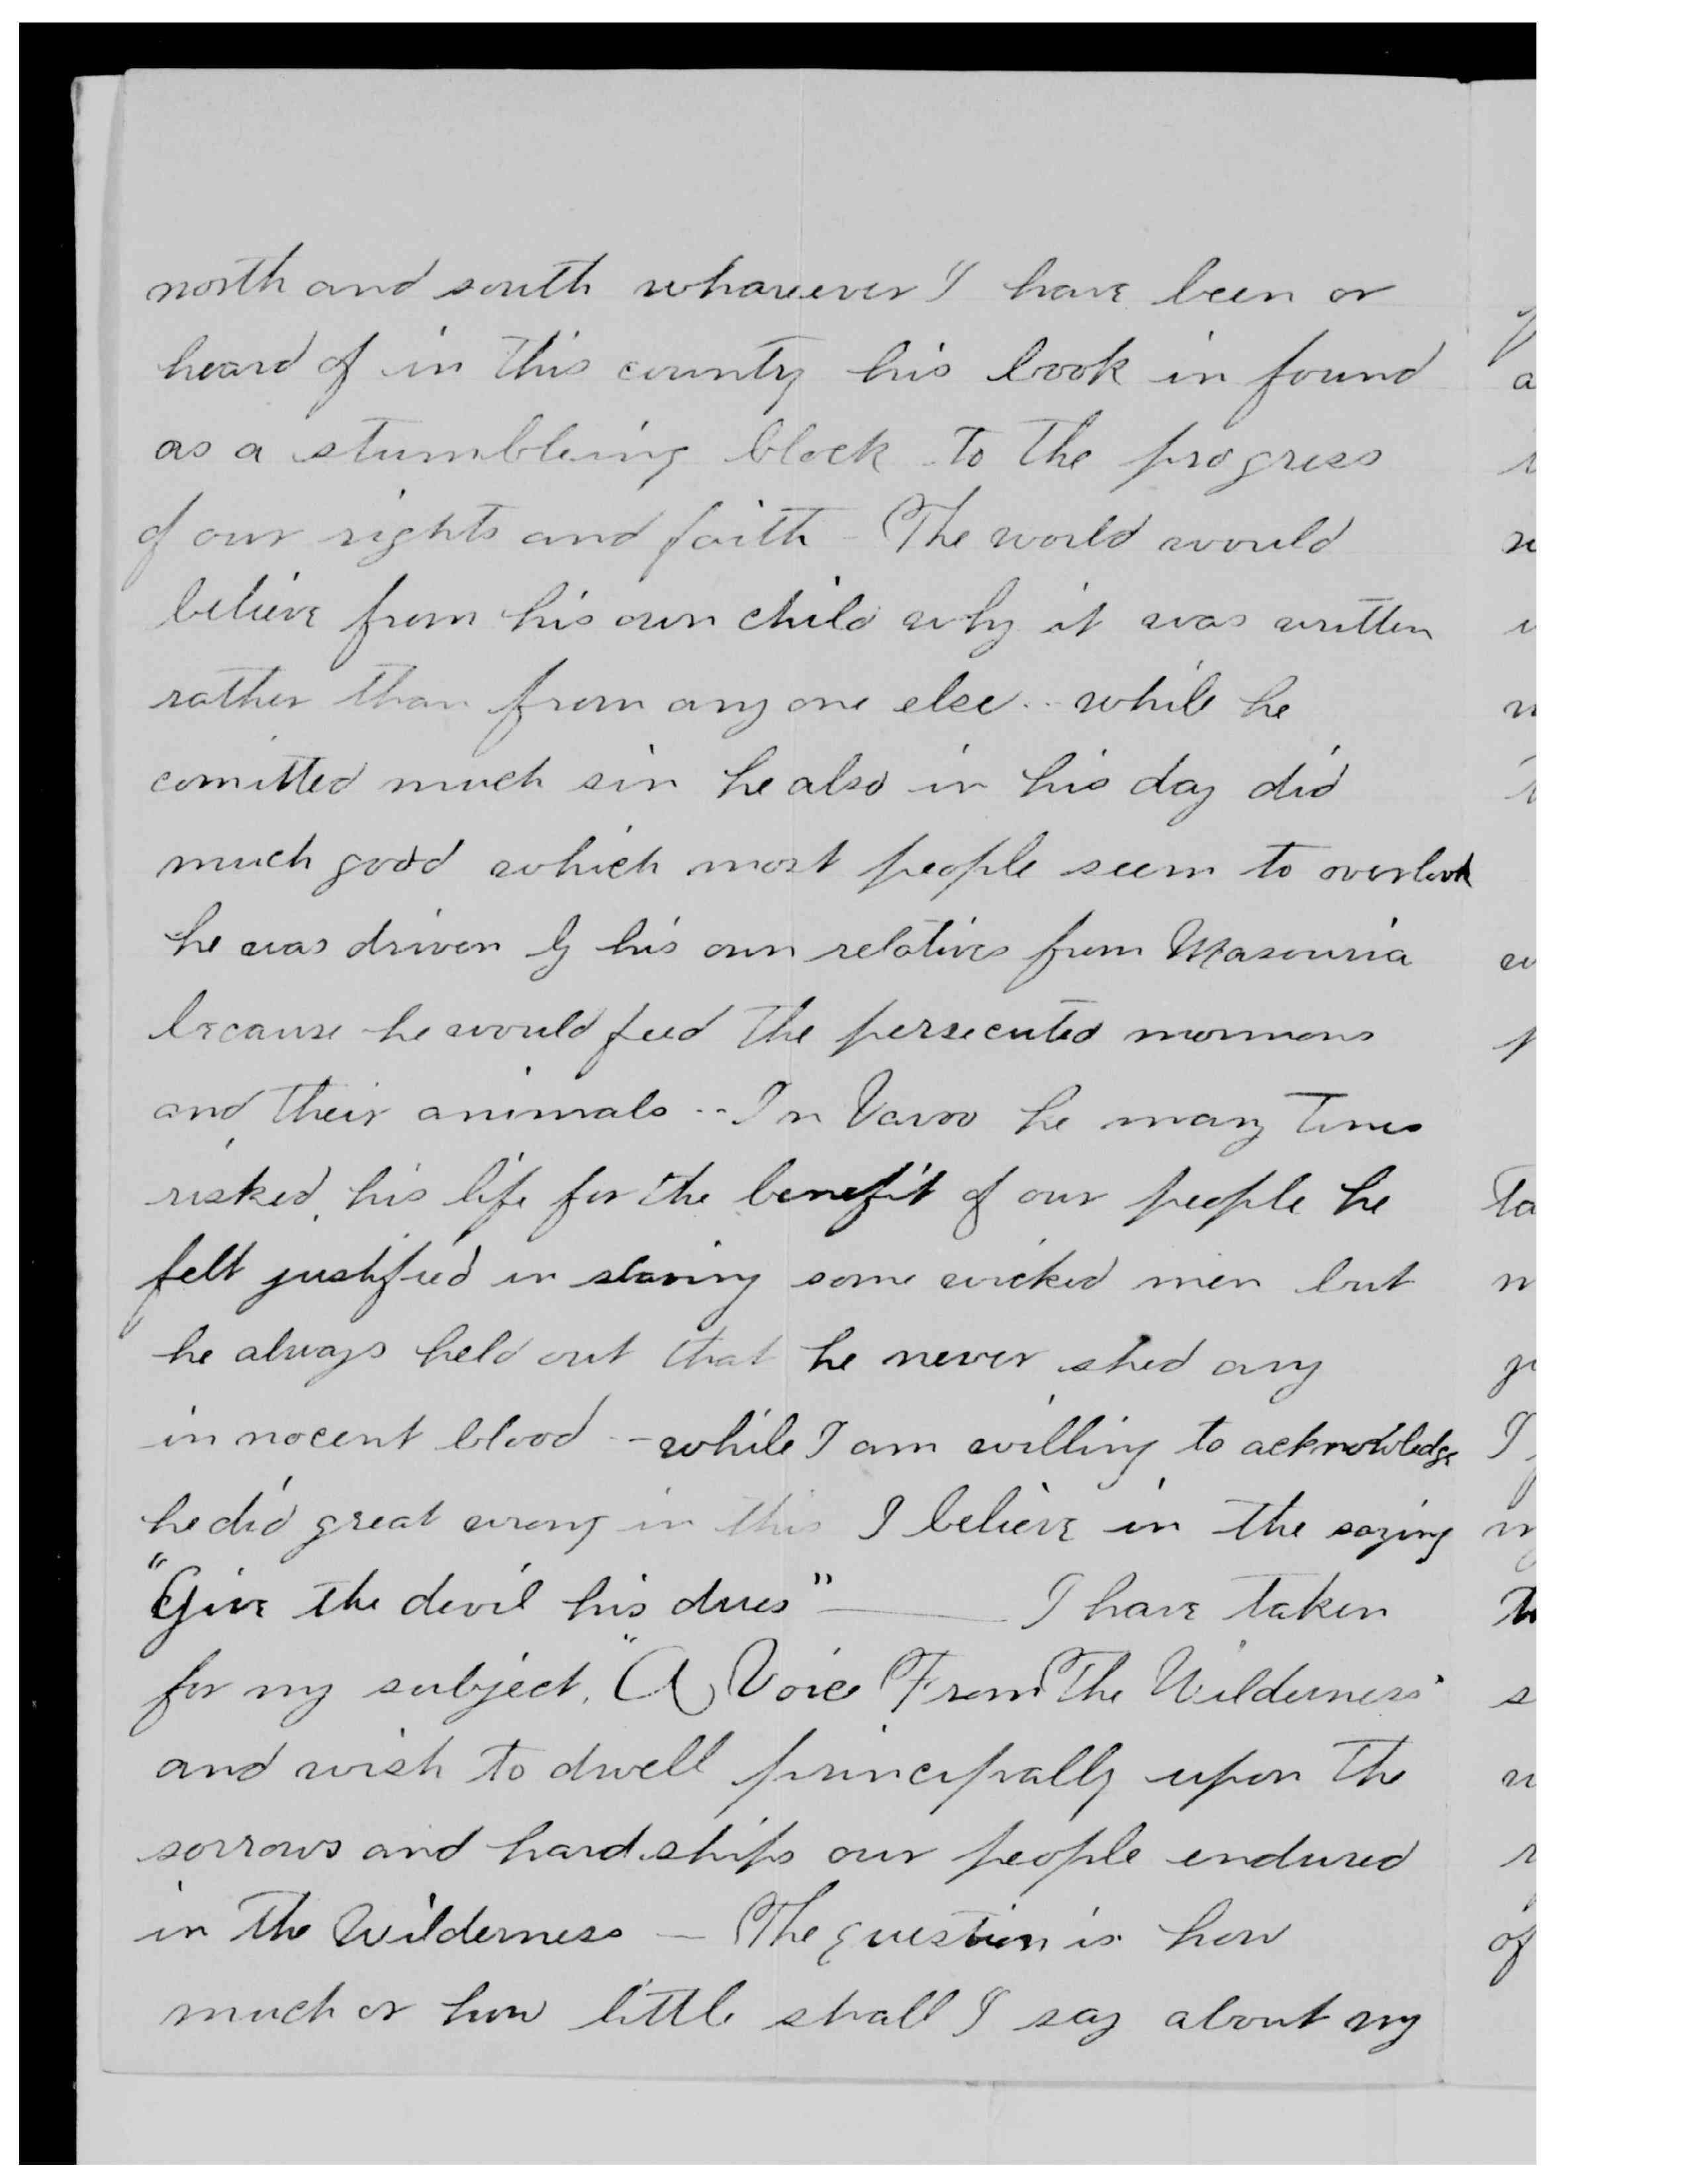 north and south whareever I have been or
heard of in this county his book in found
as a stumbleing block to the progress
of our rights and faith - The world would
believe from his own child why it was written
rather than from any one else .. while he
comitted much sin he also in his day did
much good which most people seem to overlook
he was driven by his own relatives from Masouria
because he would feed the persecuted mormons
and their animals -- In Varoo he many times
risked his life for the benefit of our people he
felt justified in slaying some wicked men but
he always held out that he never shed any
innocent blood -- while I am willing to acknowledge
he did great wrong in this I believe in the saying
"Give the devil his dues" — I have taken
for my subject, "A Voice From The Wilderness"
and wish to dwell principally upon the
sorrows and hardships our people endured
in the Wilderness — The question is how
much or how little shall I say about my